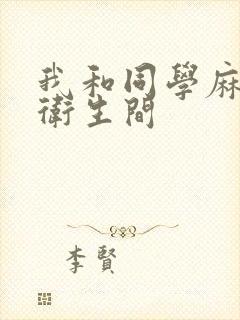 我和同學麻
衛生間
李賢